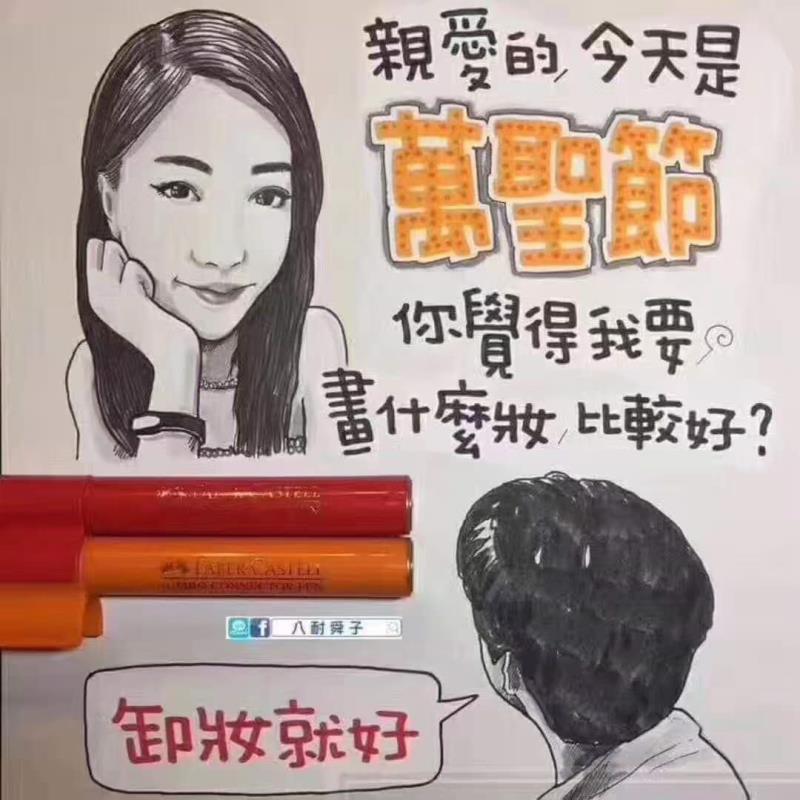 親愛的, 今天是
萬聖節
你覺得我要
畫什麼妝, 比較好?
FABER-CASTELL
FABER-CASTELL
JUMBO CONNECTOR PEN
八耐舜子
卸妝就好